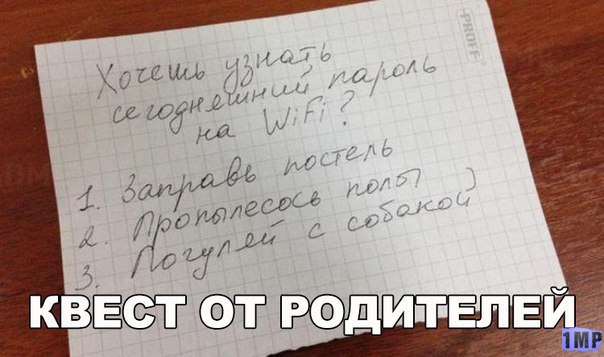 PROFF
Хочешь узнать
сегодняшний пароль
на WiFi?
1. Заправь постель
2. Пропылесось полы
3. Погуляй с собакой)
КВЕСТ ОТ РОДИТЕЛЕЙ
1MP